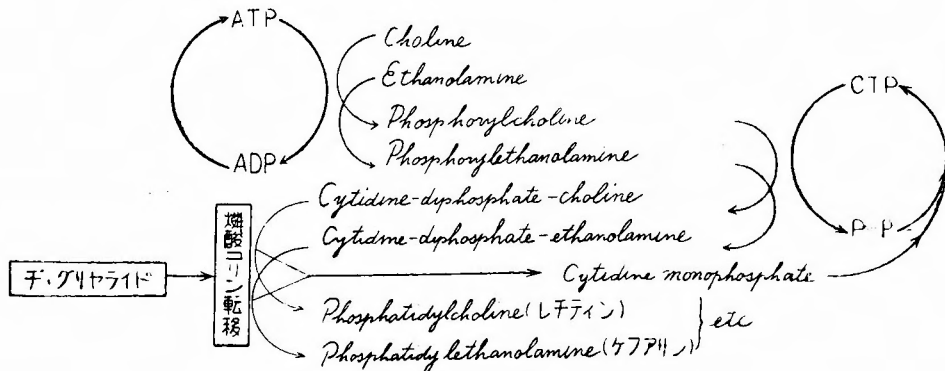 ATP
Choline
Ethanolamine
Phosphorylcholine
CTP
ADP
Phosphorylethanolamine
Cytidine-diphosphate-choline
Cytidine-diphosphate-ethanolamine
P-P
燐酸コリン転移
ヂ・グリセライド
Cytidine monophosphate
Phosphatidylcholine(レチティン)
Phosphatidylethanolamine(ケファリン)
etc